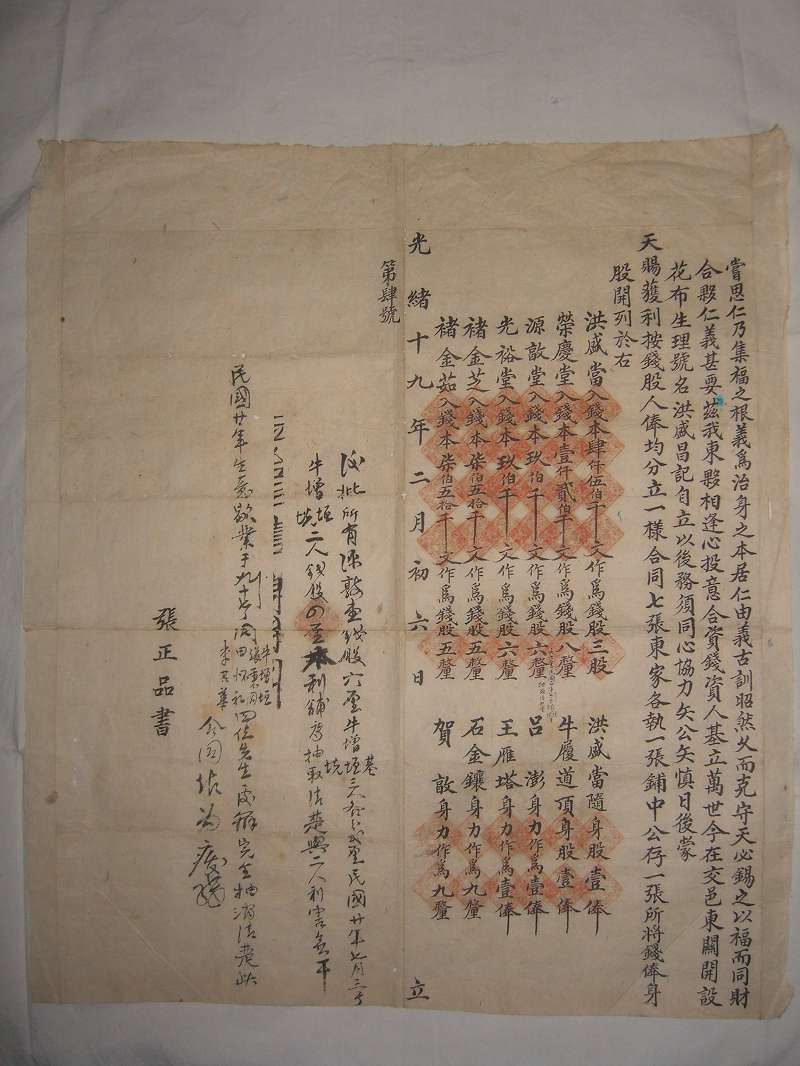 嘗思仁乃集福之根義為治身之本居仁由義古訓昭然久而克守天必錫之以福而同財
合夥仁義甚要茲我東夥相逢心投意合資錢資人基立萬世今在交邑東關開設
花布生理號名洪盛昌記自立以後務須同心協力矢公矢慎日後蒙
天賜獲利按錢股人俸均分立一樣合同七張東家各執一張鋪中公存一張所將錢俸身
股開列於右
洪盛當入錢本肆仟伍伯千文作為錢股三股
洪盛當隨身股壹俸
榮慶堂入錢本壹仟貳伯千文作為錢股八釐
牛履道頂身股壹俸
源敦堂入錢本玖伯千文作為錢股六釐
呂澎身力作為壹俸
光裕堂入錢本玖伯千文作為錢股六釐
王雁塔身力作為壹俸
褚金芝入錢本柒伯五拾千文作為錢股五釐
石金鑲身力作為九釐
褚金茹入錢本柒伯五拾千文作為錢股五釐
賀敦身力作為九釐
光緒十九年二月初六日 立
第肆號
後批所有源敦堂錢股六釐牛增垣
民國廿年七月三號
牛增垣二人錢股四釐本利鋪房抽取清楚與二人利害無干
民國廿年生意歇業于九月十號同
牛增垣
四位先生處辦完全抽消清楚此
張正品書